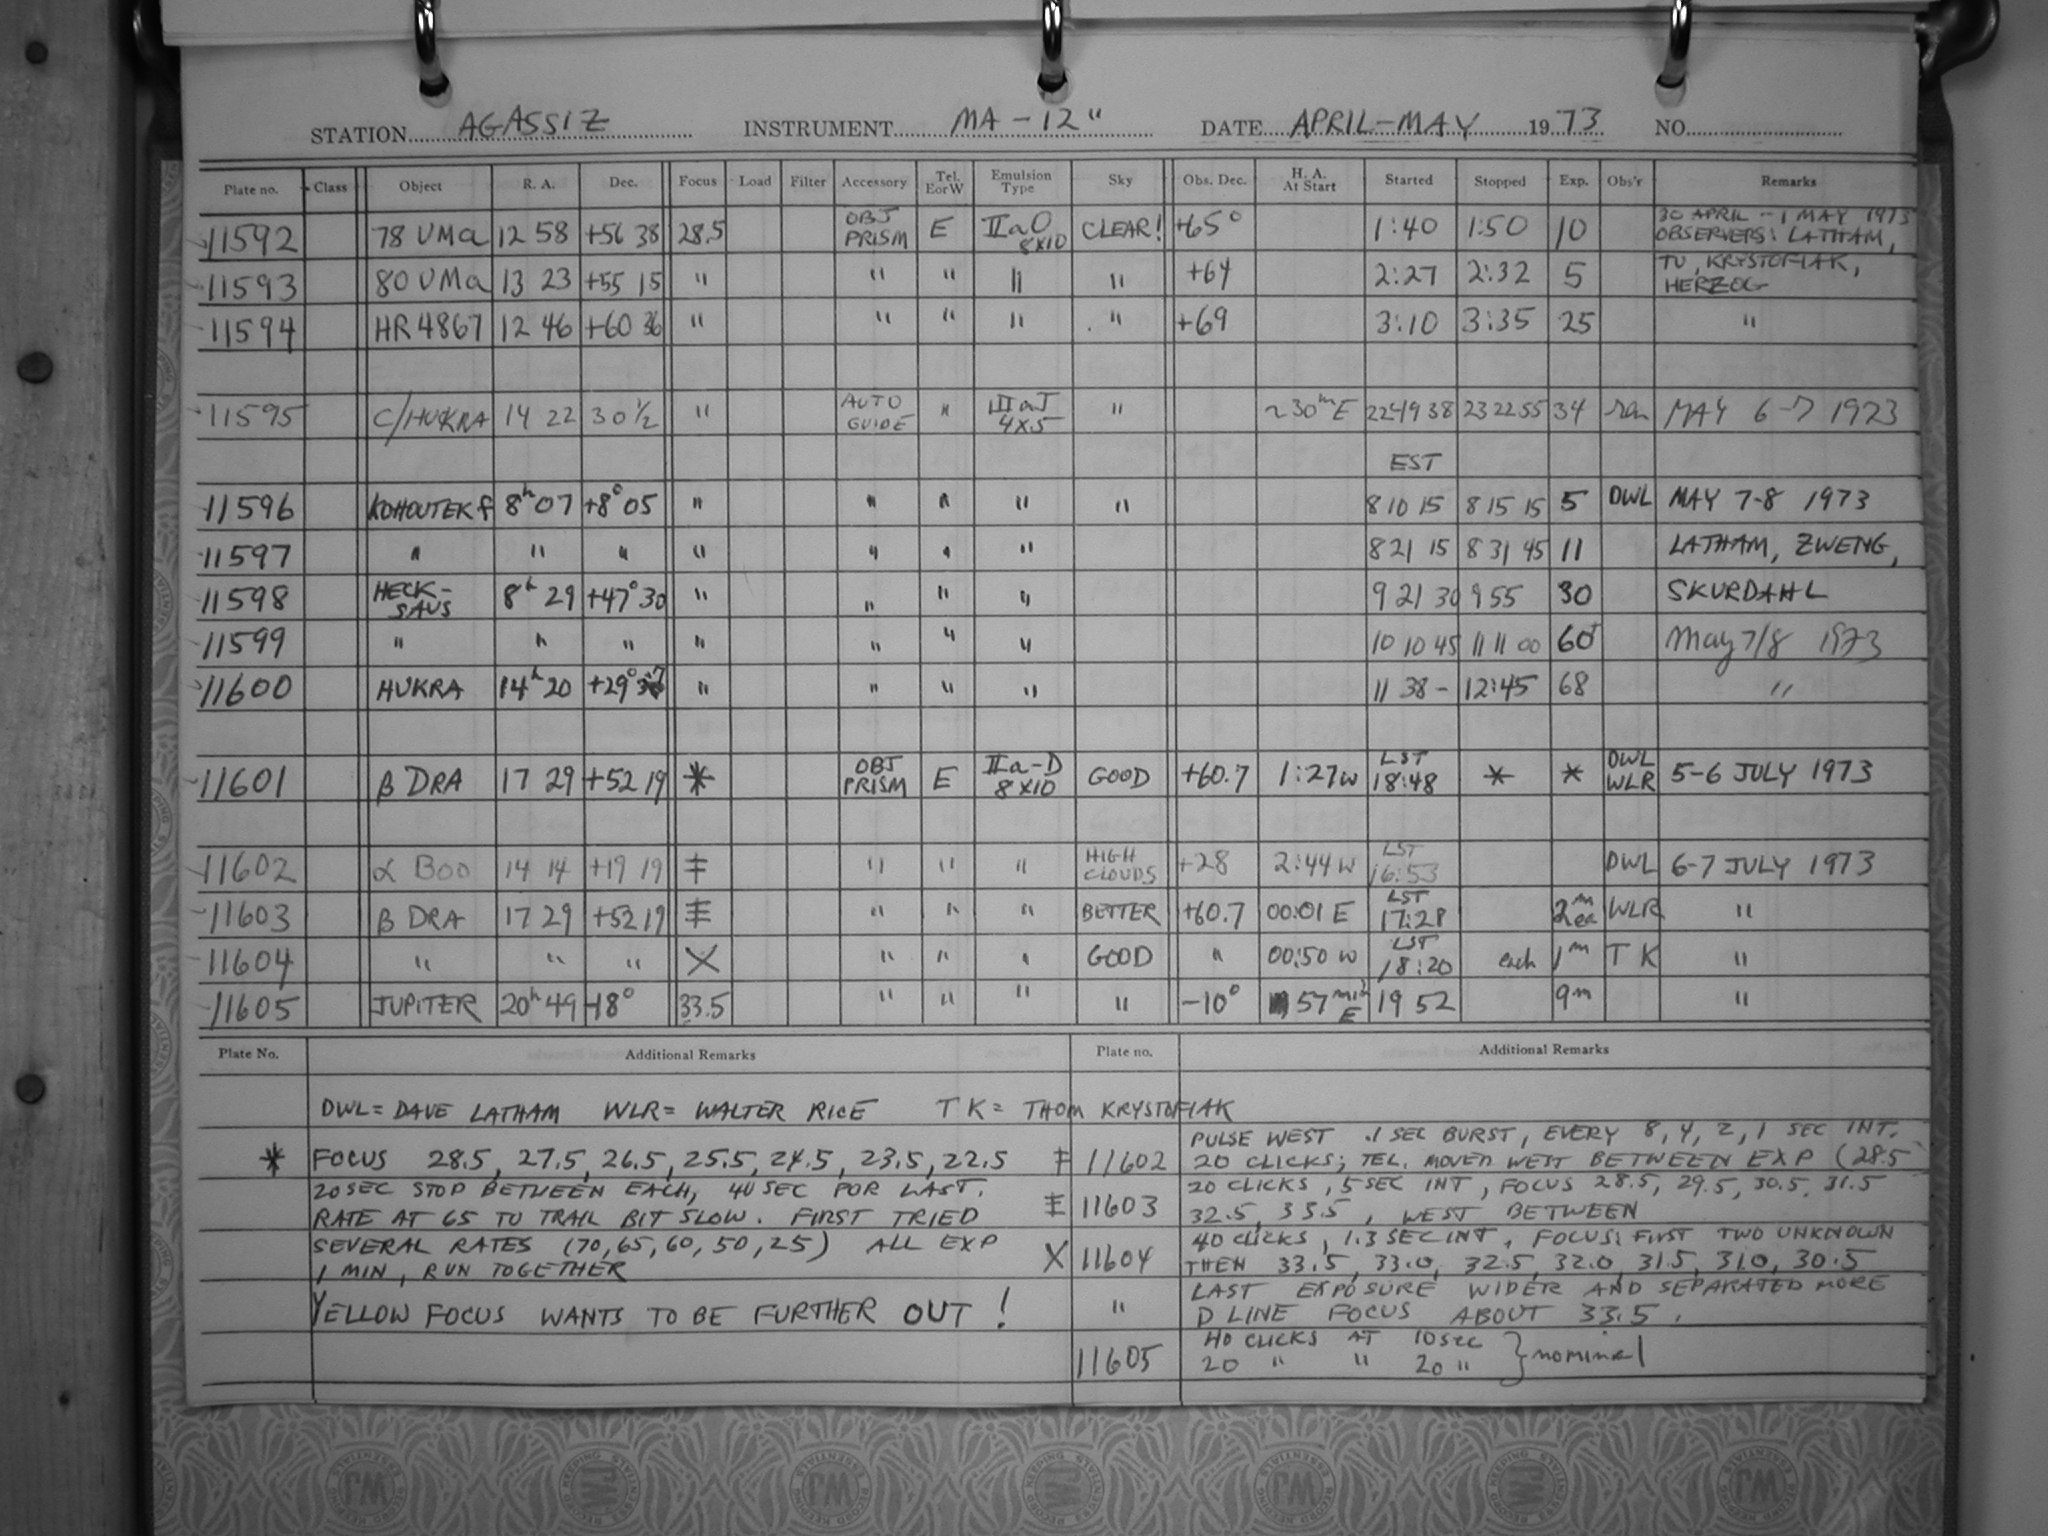 STATION AGASSIZ INSTRUMENT MA-12" DATE APRIL-MAY 1973 NO.
Plate no. Class Object R. A. Dec. Focus Load Filter Accessory Tel. E or W Emulsion Type Sky Obs. Dec. H. A. At Start Started Stopped Exp. Obs'r Remarks
11592 78 UMa 12 58 +56 38 28.5 OBJ PRISM E IIaO 8x10 CLEAR! +65° 1:40 1:50 10 30 APRIL - 1 MAY 1973 OBSERVERS: LATHAM,
11593 80 UMa 13 23 +55 15 " " " " " +64 2:27 2:32 5 TU, KRYSTOFIAK, HERZOG
11594 HR 4867 12 46 +60 36 " " " " " +69 3:10 3:35 25 "
11595 C/HUKRA 14 22 30 1/2 " AUTO GUIDE " IIIaJ 4x5 " ~30mE 224938 232255 34 MAY 6-7 1973
EST
11596 KOHOUTEK f 8h07 +8°05 " " " " " 8 10 15 8 15 15 5 DWL MAY 7-8 1973
11597 " " " " " " " 8 21 15 8 31 45 11 LATHAM, ZWENG,
11598 HECK-SAUS 8h 29 +47°30 " " " " 9 21 30 9 55 30 SKURDAHL
11599 " " " " " " " 10 10 45 11 11 00 60+ May 7/8 1973
11600 HUKRA 14h 20 +29° " " " " 11 38 - 12:45 68 "
11601 β DRA 17 29 +52 19 * OBJ PRISM E IIa-D 8x10 GOOD +60.7 1:27W LST 18:48 * * DWL WLR 5-6 JULY 1973
11602 α Boo 14 14 +19 19 ‡ " " " HIGH CLOUDS +28 2:44W LST 16:53 DWL 6-7 JULY 1973
11603 β DRA 17 29 +52 19 " " " BETTER +60.7 00:01 E LST 17:28 2m ea WLR "
11604 " " " X " " " GOOD " 00:50 W LST 18:20 each 1m TK "
11605 JUPITER 20h 49 -18° 33.5 " " " " -10° 57 min E 19 52 9m "
Plate No. Additional Remarks Plate no. Additional Remarks
DWL = DAVE LATHAM WLR = WALTER RICE TK = THOM KRYSTOFIAK
* FOCUS 28.5, 27.5, 26.5, 25.5, 24.5, 23.5, 22.5
20 SEC STOP BETWEEN EACH, 40 SEC FOR LAST.
RATE AT 65 TO TRAIL BIT SLOW. FIRST TRIED
SEVERAL RATES (70, 65, 60, 50, 25) ALL EXP
1 MIN, RUN TOGETHER
YELLOW FOCUS WANTS TO BE FURTHER OUT!
‡ 11602 PULSE WEST .1 SEC BURST, EVERY 8, 4, 2, 1 SEC INT.
20 CLICKS; TEL. MOVED WEST BETWEEN EXP (28.5
11603 20 CLICKS, 5 SEC INT, FOCUS 28.5, 29.5, 30.5, 31.5
32.5, 33.5, WEST BETWEEN
X 11604 40 CLICKS, 1.3 SEC INT, FOCUS: FIRST TWO UNKNOWN
THEN 33.5, 33.0, 32.5, 32.0, 31.5, 31.0, 30.5
" LAST EXPOSURE WIDER AND SEPARATED MORE
D LINE FOCUS ABOUT 33.5.
11605 40 CLICKS AT 10 sec
20 " " 20 " } nominal